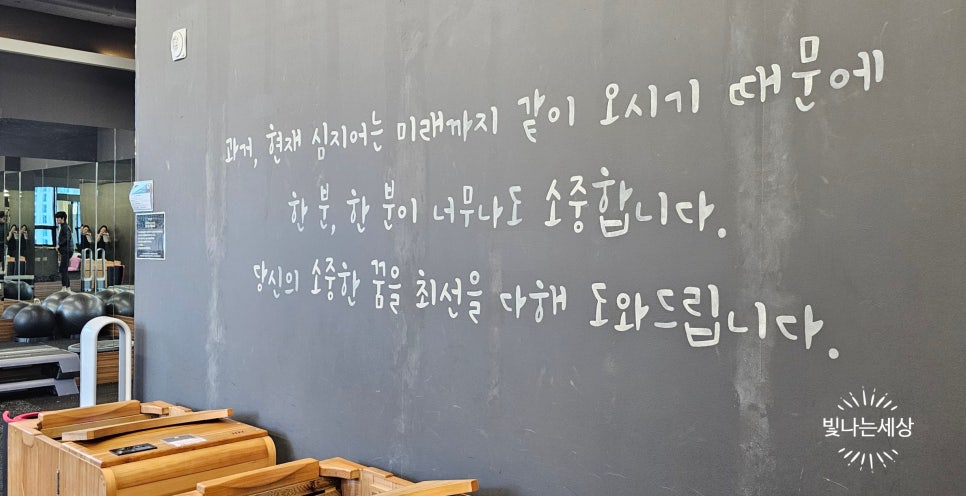 과거, 현재 심지어는 미래까지 같이 오시기 때문에
한 분, 한 분이 너무나도 소중합니다.
당신의 소중한 꿈을 최선을 다해 도와드립니다.
빛나는세상